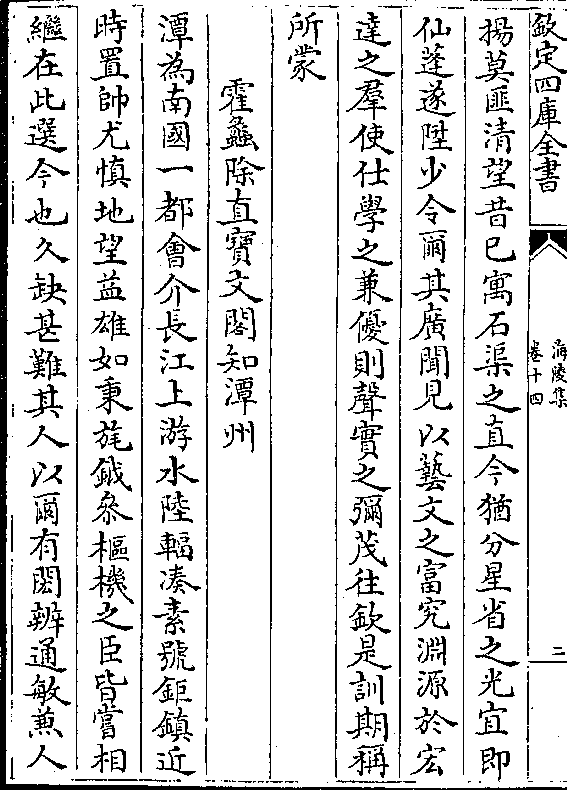 欽定四庫全書
海陵集
卷十四
二
揚莫匪清望昔已寓石渠之直今猶分星省之光宜即
仙蓬遂陞少令爾其廣聞見以藝文之富究淵源於宏
達之羣使仕學之兼優則聲實之彌茂往欽是訓期稱
所蒙
霍蠡除直寶文閣知潭州
潭為南國一都會介長江上游水陸輻湊素號鉅鎮近
時置帥尤慎地望益雄如秉旄鉞叅樞機之臣皆嘗相
繼在此選今也久缺甚難其人以爾有閎辨通敏兼人